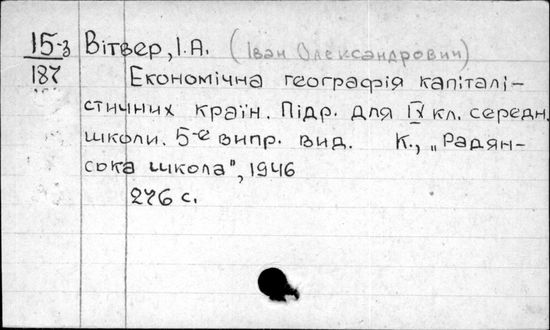 15-з Вітвер, І.А. (Іван Олександрович)
187 Економічна географія капіталі-
стичних країн. Підр. для IX кл. середн.
школи. 5-е випр. вид. К., „Радян-
ська школа", 1946
276 с.